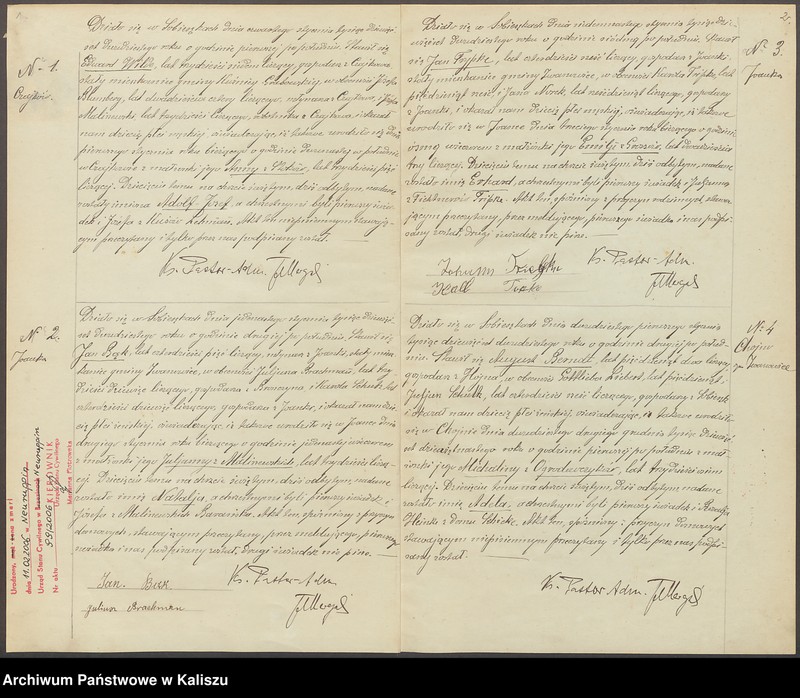 Nº 1.
Czajków.
Działo się w Sobiesękach dnia czwartego stycznia tysiąc dziewięć-
set dwudziestego roku o godzinie pierwszej po południu. Stawił się
Edward lat trzydzieści siedm liczący, gospodarz z Czajkowa
stały mieszkaniec gminy w obecności Józefa
lat dwadzieścia cztery liczącego, rolnika z Czajkowa, i Józefa
Malinowski, lat liczącego, z Czajkowa i okazał
nam dziecię płci męskiej, oświadczając, iż takowe urodziło się dnia
pierwszego stycznia roku bieżącego o godzinie w południe
w Czajkowie z małżonki jego Anny z lat trzydzieści pięć
liczącej. Dziecięciu temu na chrzcie świętym, dziś odbytym, nadane
zostały imiona Adolf Józef, a chrzestnymi byli pierwszy świa-
dek i Józefa z Akt ten niepiśmiennym stawają-
cym przeczytany i tylko przez nas podpisany został.
Ks. Pastor-Adm. JMergel
Nº 2.
Joanka
Działo się w Sobiesękach dnia jedenastego stycznia tysiąc dziewięć-
set dwudziestego roku o godzinie drugiej po południu. Stawił się
Jan Bęk, lat czterdzieści pięć liczący, z Joanki, stały miesz-
kaniec gminy Iwanowice, w obecności Juljusza Brachman, lat trzy-
dzieści dziewięć liczącego, gospodarza z i Karola lat
czterdzieści dziewięć liczącego, gospodarza z Joanki, i okazał nam dzie-
cię płci męskiej, oświadczając, iż takowe urodziło się w Joance dnia
drugiego stycznia roku bieżącego o godzinie jedenastej wieczorem
z małżonki jego Juljanny z Malinowskich, lat trzydzieści liczą-
cej. Dziecięciu temu na chrzcie świętym, dziś odbytym, nadane
zostało imię a chrzestnymi byli pierwszy świadek i
Józefa z Malinowskich Akt ten, spóźniony z przyczyn
domowych, stawającym przeczytany, przez meldującego, pierwszego
świadka i nas podpisany został. Drugi świadek nie pisze.
Jan. Bęk
Julius Brachman
Ks. Pastor-Adm.
JMergel
Urodzony, zmarł
dnia 11.02.1906 - Neuruppin
Urząd Stanu Cywilnego w Neuruppin
Nr aktu 99/2006
KIEROWNIK
Urzędu Stanu Cywilnego
2.
Nº 3.
Joanka
Działo się w Sobiesękach dnia siedemnastego stycznia tysiąc dzie-
więćset dwudziestego roku o godzinie siódmej po południu. Stawił
się Jan lat czterdzieści sześć liczący, gospodarz z Joanki,
stały mieszkaniec gminy Iwanowice, w obecności Karola lat
pięćdziesiąt sześć i Jana lat sześćdziesiąt liczącego, gospodarzy
z Joanki, i okazał nam dziecię płci męskiej, oświadczając, iż takowe
urodziło się w Joance dnia trzeciego stycznia roku bieżącego o godzinie
ósmej wieczorem z małżonki jego Emilji lat dwadzieścia
trzy liczącej. Dziecięciu temu na chrzcie świętym, dziś odbytym, nadane
zostało imię Erhard, a chrzestnymi byli pierwszy świadek i Juljanna
z Akt ten, spóźniony z przyczyn rodzinnych, stawa-
jącym przeczytany, przez meldującego, pierwszego świadka i nas podpi-
sany został, drugi świadek nie pisze.
Johann
Karl
Ks. Pastor-Adm.
JMergel
Nº 4
Chojno
gm. Iwanowice
Działo się w Sobiesękach dnia dwudziestego pierwszego stycznia
tysiąc dziewięćset dwudziestego roku o godzinie drugiej po połud-
niu. Stawił się August Berndt, lat pięćdziesiąt dwa liczący,
gospodarz z Chojna, w obecności Gottlieba lat pięćdziesiąt i
Juljusza Schulk, lat czterdzieści sześć liczącego, gospodarzy z Sobiesęk
i okazał nam dziecię płci żeńskiej, oświadczając, iż takowe urodziło
się w Chojnie dnia dwudziestego drugiego grudnia tysiąc dziewięć-
set dziewiętnastego roku o godzinie pierwszej po południu z mał-
żonki jego Michaliny z lat trzydzieści siedem
liczącej. Dziecięciu temu na chrzcie świętym, dziś odbytym nadane
zostało imię Adela, a chrzestnymi byli pierwszy świadek i
z domu Akt ten, spóźniony z przyczyn domowych
stawającym niepiśmiennym przeczytany i tylko przez nas podpi-
sany został.
Ks. Pastor Adm. JMergel
Archiwum Państwowe w Kaliszu